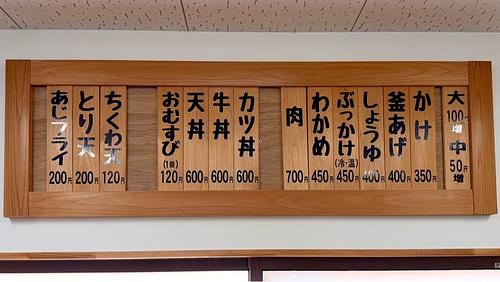 大 100円増 中 50円増
かけ 350円
釜あげ 400円
しょうゆ 400円
ぶっかけ (冷・温) 450円
わかめ 450円
肉 700円
カツ丼 600円
牛丼 600円
天丼 600円
おむすび (1個) 120円
ちくわ天 120円
とり天 200円
あじフライ 200円